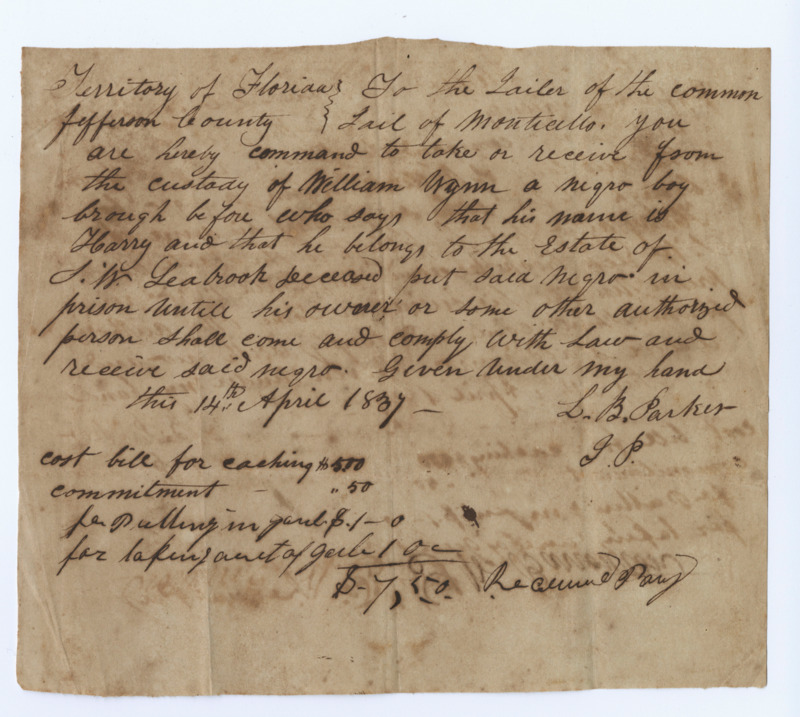 Territory of Florida } To the Jailer of the common
Jefferson County } Jail of Monticello. You
are hereby command to take or receive from
the custody of William Wynn a negro boy
brough before who says that his name is
Harry and that he belongs to the Estate of
J. W Seabrook deceased put said negro in
prison untill his owner or some other authorized
person shall come and comply with Law and
receive said negro. Given under my hand
this 14th April 1837 —
L. B. Parker
J. P.
cost bill for caching $5 00
commitment — " 50
for Putting in gaol $.1 - 0
for taking out of gaole 1 00
$ - 7,50. Received Pay